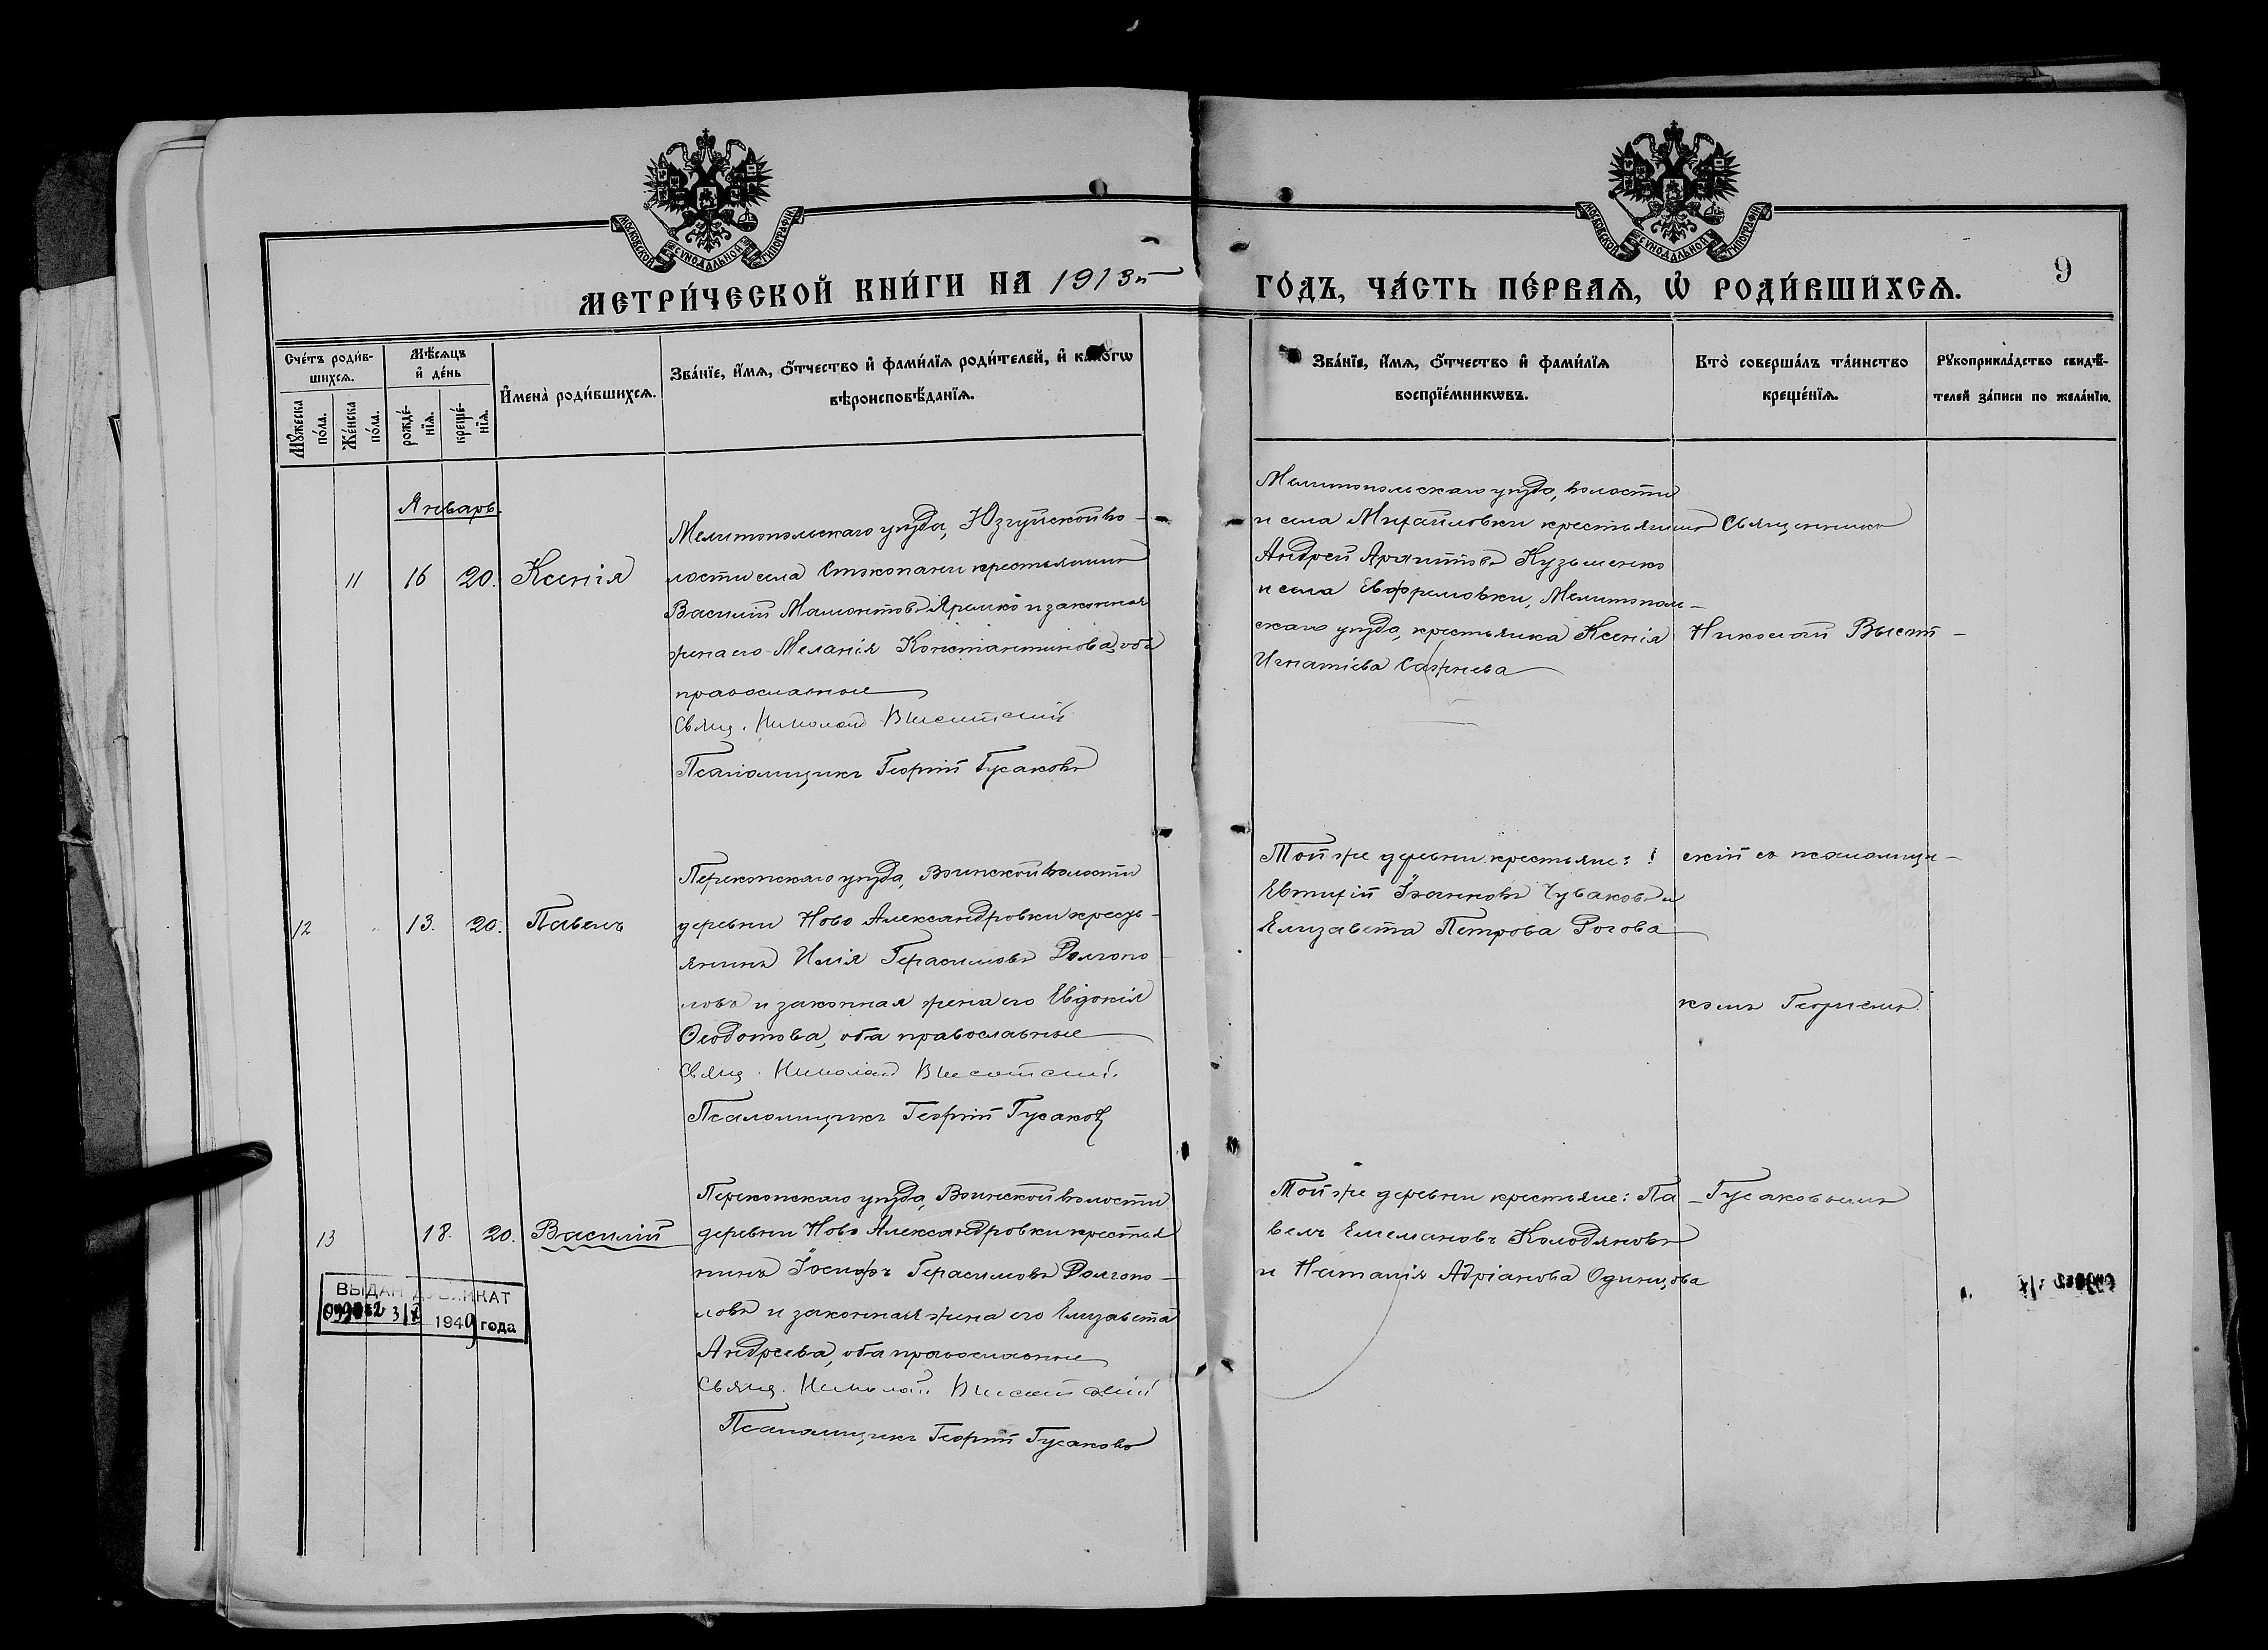 МОСКОВСКОЙ СѴНОДАЛЬНОЙ ТИПОГРАФІИ
МОСКОВСКОЙ СѴНОДАЛЬНОЙ ТИПОГРАФІИ
МЕТРИ́ЧЕСКОЙ КНИ́ГИ НА 1913й
ГО́ДЪ, ЧА́СТЬ ПЕ́РВАѦ, Ѡ РОДИ́ВШИХСѦ.
9
Сче́тъ роди́в-
шихсѧ.
Мꙋ́жеска
по́ла.
Же́нска
по́ла.
Мѣ́сѧцъ
и҆ де́нь
рожде́-
нїѧ.
креще́-
нїѧ.
И҆мена̀ роди́вшихсѧ.
Зва́нїе, и҆́мѧ, о҆́тчество и҆ фами́лїѧ роди́телей, и҆ како́гѡ
вѣроисповѣ́данїѧ.
Зва́нїе, и҆́мѧ, о҆́тчество и҆ фами́лїѧ
воспрїе́мникѡвъ.
Кто̀ соверша́лъ та́инство
креще́нїѧ.
Рꙋкоприкла́дство свидѣ́-
телей за́писи по жела́нїю.
Январь.
11 16 20. Ксенія
Мелитопольскаго уѣзда, Юзкуйской во-
лости села Стокопани крестьянинъ
Василій Мамонтовъ Яремко и законная
жена его Меланія Константинова, оба
православные
Свящ. Николай Высотскій
Псаломщикъ Георгій Гусаковъ
Мелитопольскаго уѣзда, волости
и села Михайловки крестьянинъ
Андрей Кузьменко
и села Ефремовки, Мелитополь-
скаго уѣзда, крестьянка Ксенія
Игнатіева Сажнева
Священникъ
Николай Высот-
12 " 13. 20. Павелъ
Перекопскаго уѣзда, Воинской волости
деревни Ново Александровки кресть-
янинъ Илія Герасимовъ Долгопо-
ловъ и законная жена его Евдокія
Ѳеодотова, оба православные
Свящ. Николай Высотскій.
Псаломщикъ Георгій Гусаковъ
Той же деревни крестьяне:
Евтихій Іоанновъ Чуваковъ и
Елизавета Петрова Рогова
скій съ псаломщи-
комъ Георгіемъ
13 18. 20. Василій
Перекопскаго уѣзда, Воинской волости
деревни Ново Александровки крестья
нинъ Іосифъ Герасимовъ Долгопо-
ловъ и законная жена его Елизавета
Андреева, оба православные
Свящ. Николай Высотскій
Псаломщикъ Георгій Гусаковъ
Той же деревни крестьяне: Па-
велъ Колодяковъ
и Наталія Адріанова Одинцова
Гусаковымъ
ВЫДАН ДУБЛИКАТ
1949 года